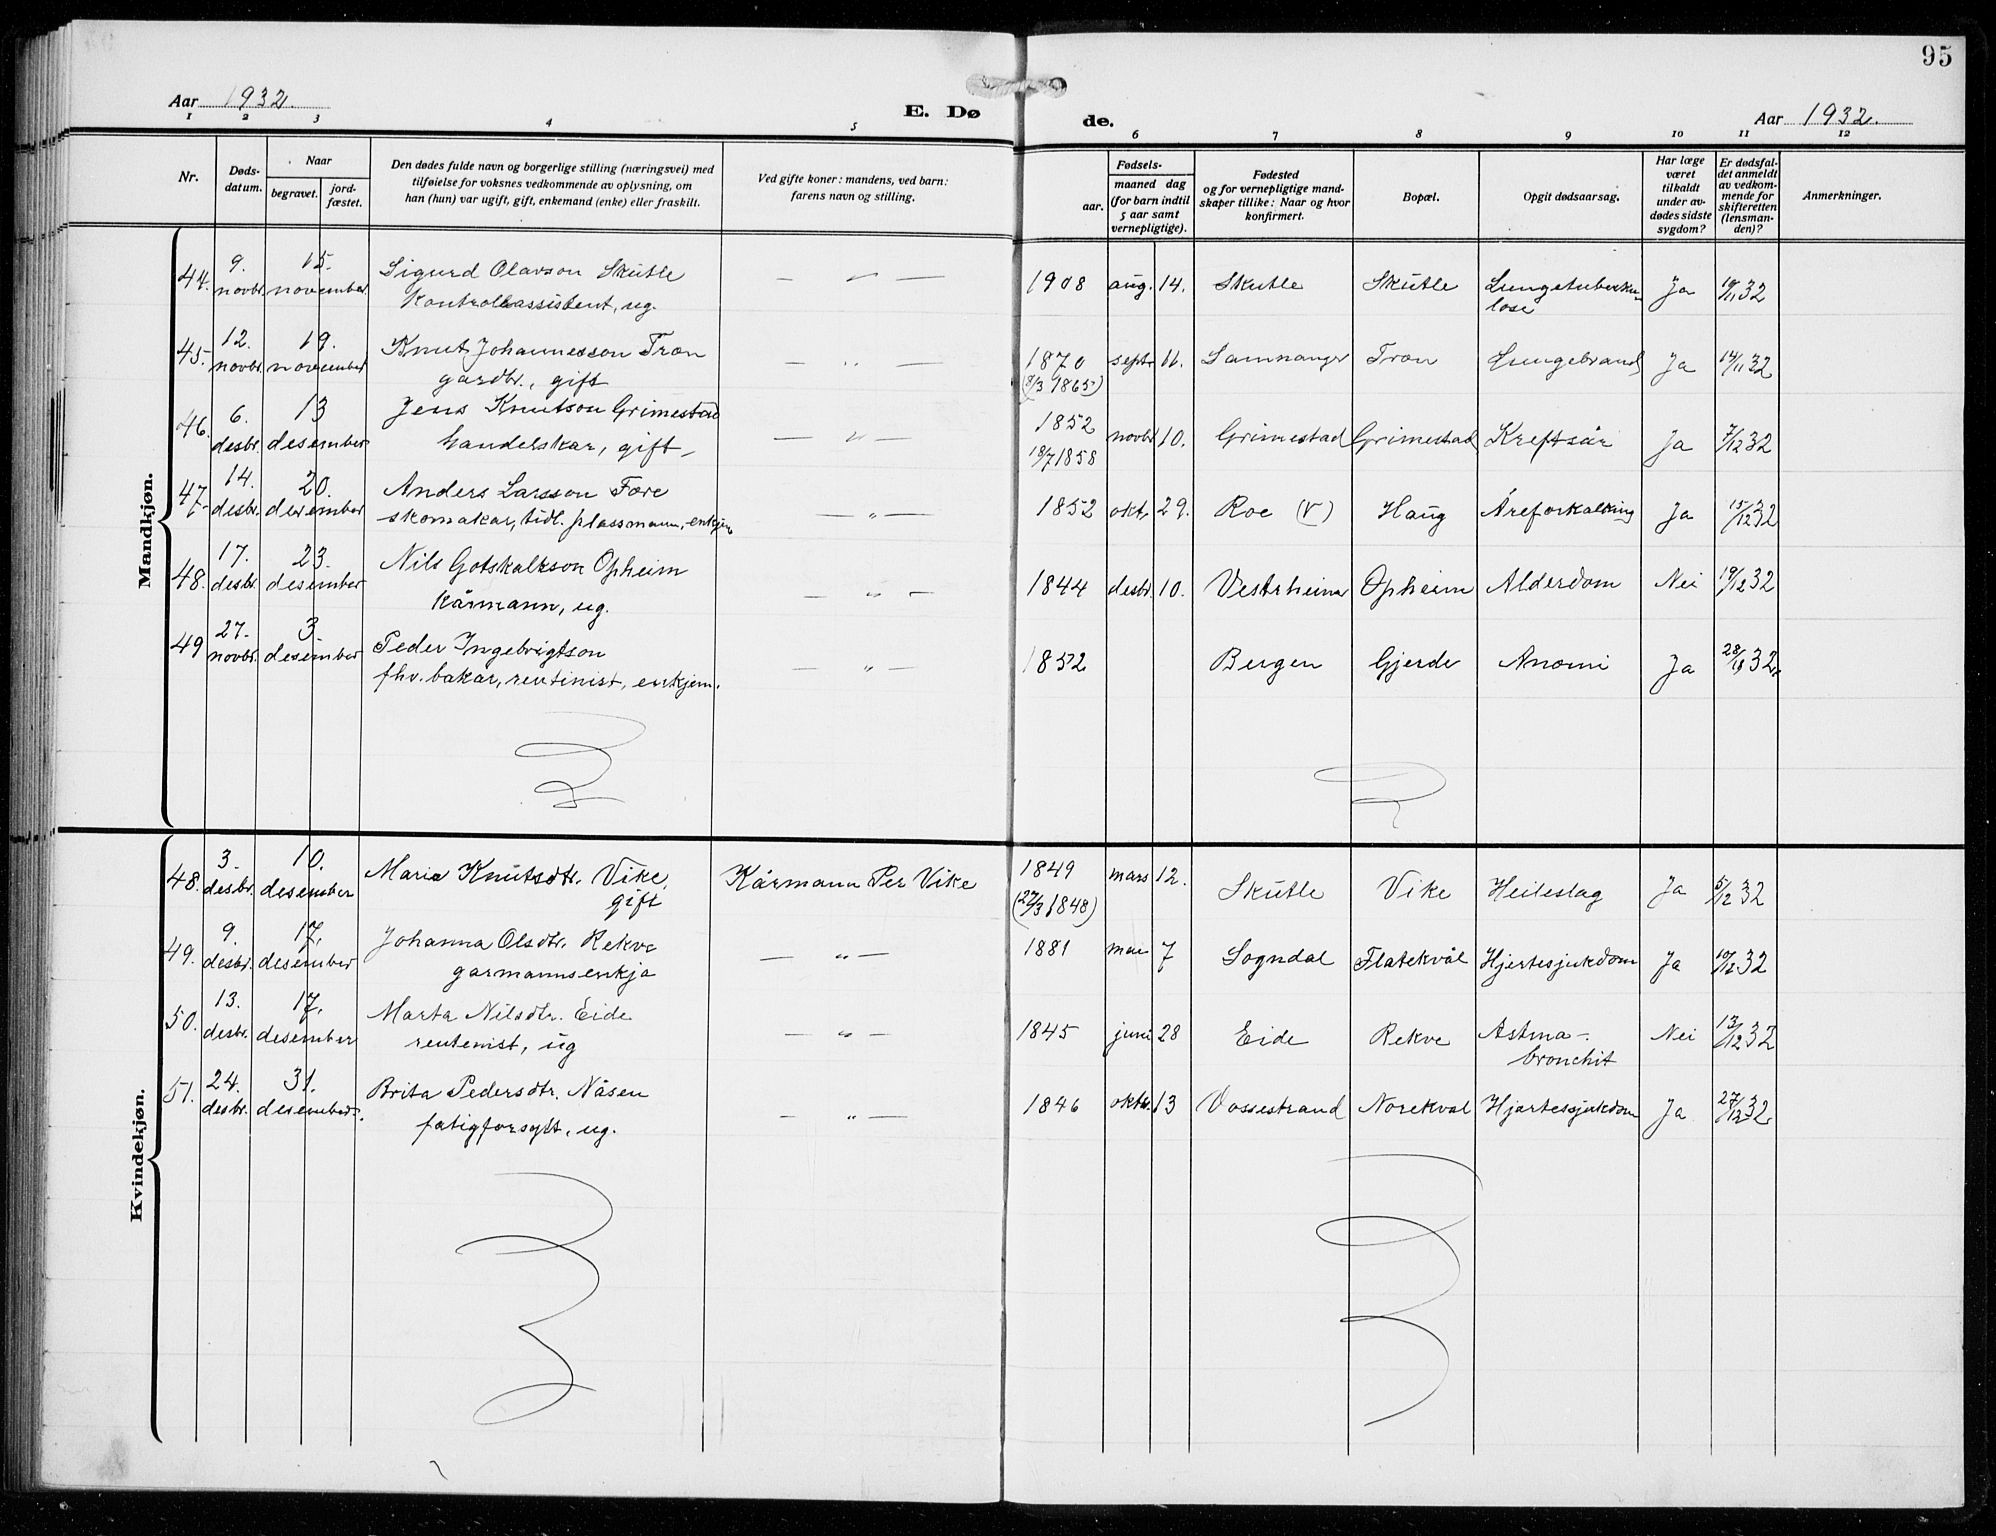 95
Aar 1932.
E. Dø
de.
Aar 1932.
1 2 3 4 5 6 7 8 9 10 11 12
Nr.
Døds-
datum.
Naar
begravet.
jord-
fæstet.
Den dødes fulde navn og borgerlige stilling (næringsvei) med
tilføielse for voksnes vedkommende av oplysning, om
han (hun) var ugift, gift, enkemand (enke) eller fraskilt.
Ved gifte koner: mandens, ved barn:
farens navn og stilling.
Fødsels-
aar.
maaned dag
(for barn indtil
5 aar samt
vernepligtige).
Fødested
og for vernepligtige mand-
skaper tillike: Naar og hvor
konfirmert.
Bopæl.
Opgit dødsaarsag.
Har læge
været
tilkaldt
under av-
dødes sidste
sygdom?
Er dødsfal-
det anmeldt
av vedkom-
mende for
skifteretten
(lensman-
den)?
Anmerkninger.
Mandkjøn.
44. 9. novbr. 15. november Sigurd Olavson Skutle — " — 1908 aug. 14. Skutle Skutle Lungetuberku-
Kontrollassistent, ug. lose Ja 10/11 32
45. 12. novbr. 19. november Knut Johannesson Tron — " — 1870 sept. 11. Samnanger Tron Lungebrand Ja 14/11 32
gardbr., gift (8/3 1865)
46. 6. desbr. 13 desember Jens Knutson Grimestad — " — 1852 novbr 10. Grimestad Grimestad Kreftsår Ja 7/12 32
handelskar, gift 18/7 1858
47. 14. desbr. 20. desember Anders LarssonFøre — " — 1852 okt. 29. Roe (V) Haug Åreforkalking Ja 15/12 32
skomakar, tidl. plassmann, enkjem.
48. 17. desbr. 23. desember Nils Gotskalkson Opheim — " — 1844 desbr. 10. Vestrheim Opheim Alderdom Nei 19/12 32
Kårmann, ug.
49 27. novbr. 3. desember Peder Ingebrigtson — " — 1852 Bergen Gjerde Anæmi Ja 28/11 32.
fhv. bakar, rentinist, enkjem.
Kvindekjøn.
48. 3. desbr. 10. desember Maria Knutsdtr. Vike, Kårmann Per Vike 1849 mars 12. Skutle Vike Heileslag Ja 5/12 32
gift (27/3 1848)
49. 9. desbr. 17. desember Johanna Olsdtr. Rekve — " — 1881 mai 7 Sogndal Flatekvål Hjertesjukdom Ja 10/12 32
garmannsenkja
50. 13. desbr. 17. desember Marta Nilsdtr. Eide — " — 1845 juni 28 Eide Rekve Astma-
rentenist, ug bronchit Nei 13/12 32
51. 24. desbr. 31. desember. Brita Pedersdtr. Nåsen — " — 1846 oktbr. 13 Vossestrand Norekvål Hjartesjukdom Ja 27/12 32.
fatigforsytt, ug.